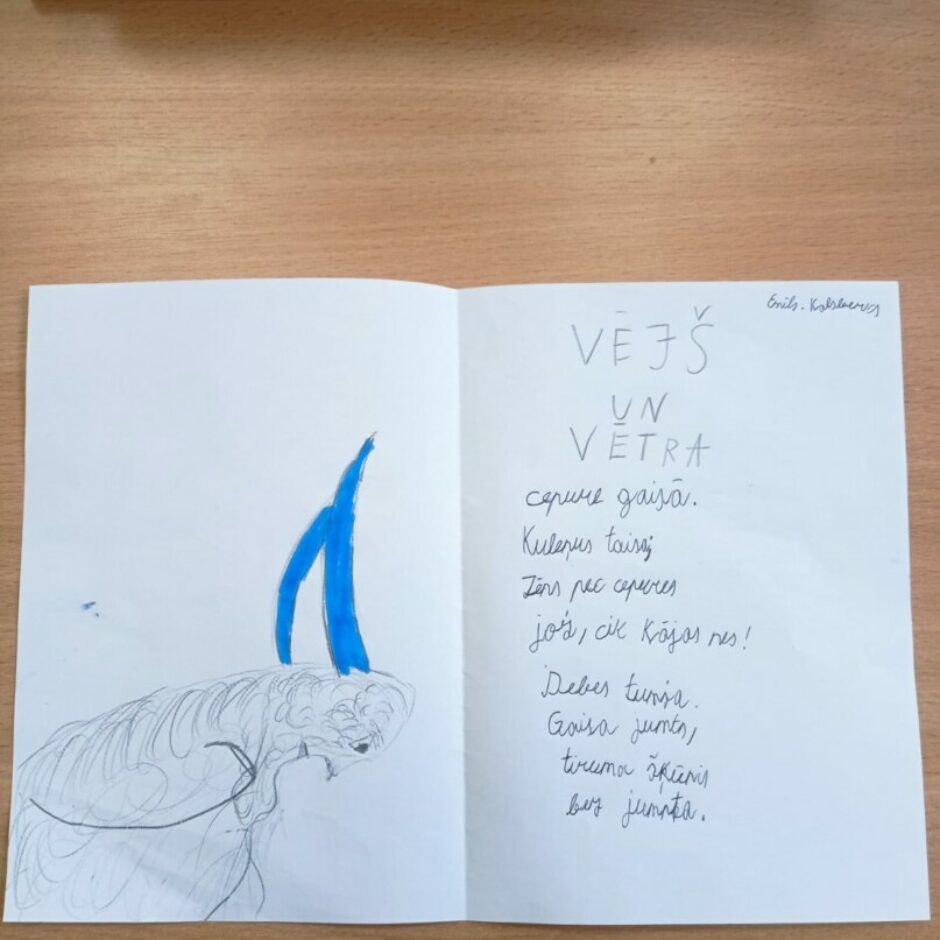 Emils.
VĒJŠ
UN
VĒTRA
cepure gaisā.
Kuleņus taisa;
Zēns pēc cepures
jož, cik kājas nes!
Debes tumša.
Gaisa jumts,
tīruma šķūnis
bez jumta.